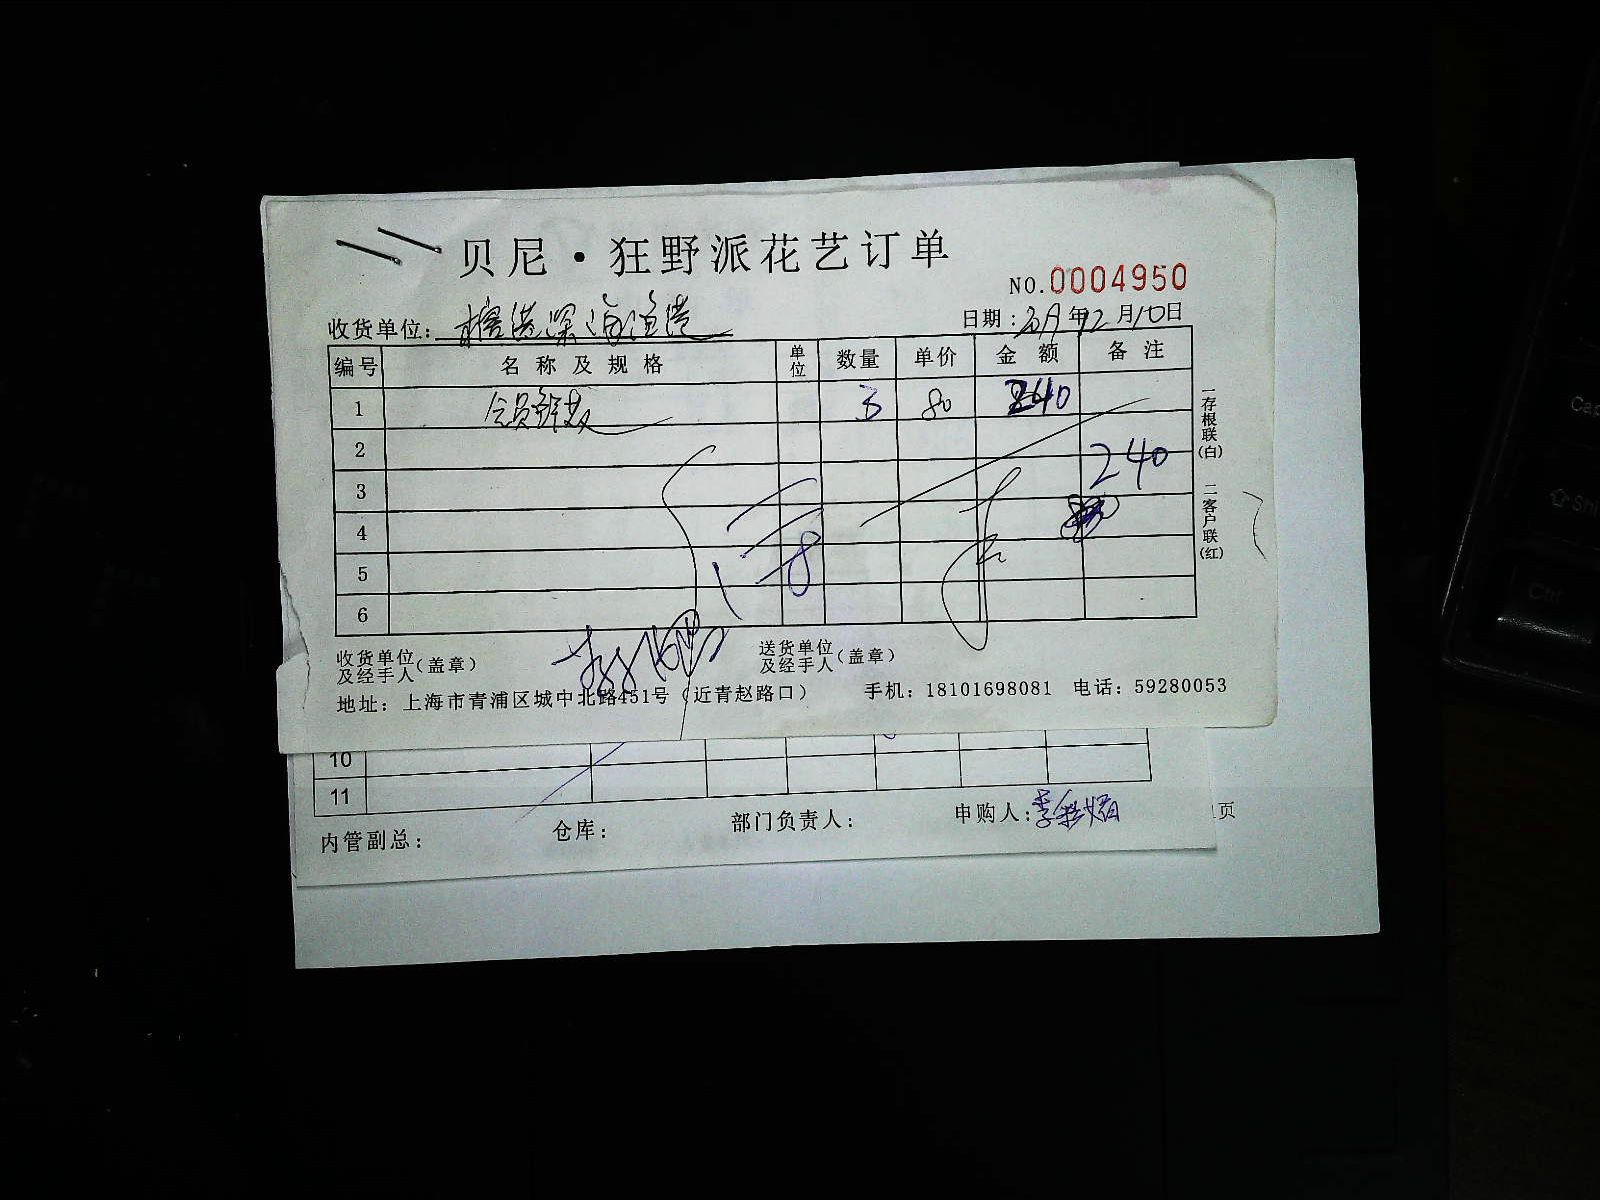 贝尼·狂野派花艺订单
NO.0004950
收货单位:
日期: 年12月10日
编号 名称及规格 单位 数量 单价 金额 备注
1 会员鲜花 3 80 240
2 240
3
4
5
6
一存根联(白) 二客户联(红)
收货单位及经手人(盖章)
送货单位及经手人(盖章)
地址: 上海市青浦区城中北路451号(近青赵路口) 手机: 18101698081 电话: 59280053
10
11
内管副总: 仓库: 部门负责人: 申购人:
页
Ctrl